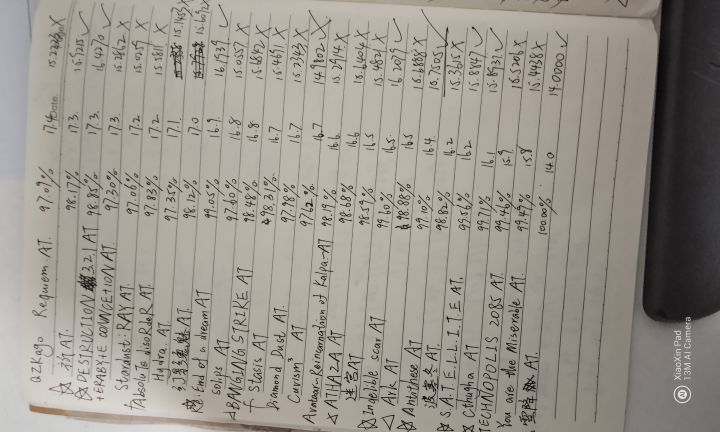 azkago Requiem AT. 97.09% 17.4 15.2223 X
祈 AT. 98.17% 17.3 15.7215 ✓
DESTRUCTION 3,2,1 AT 98.85% 17.3 16.4270 ✓
+ERABSTE COUNCETION AT. 97.30% 17.3 15.2862 X
Stardust:RAY AT. 97.06% 17.2 15.0259 X
†Absolute disoRdeR AT. 97.83% 17.2 15.5811 X
Hydra AT. 97.35% 17.1 15.1453 X
End of a dream AT 98.12% 17.0 15.6092 X
solips AT 99.05% 16.9 16.1939 ✓
BANGING STRIKE AT 97.60% 16.8 15.0557 X
Stasis AT 98.48% 16.8 15.6892 X
Diamond Dust AT. 98.31% 16.7 15.4697 X
Cuvism³ AT 97.98% 16.7 15.2343 X
Avataar~Reincarnation of Kalpa~AT 97.62% 16.7 14.9802 X
ATHAZA AT 98.19% 16.6 15.2914 X
迷宮 AT 98.68% 16.6 15.6404 X
Indelible scar AT 98.59% 16.5 15.4821 X
Ark AT 99.60% 16.5 16.2079 ✓
Antithese AT 98.88% 16.5 15.6888 X
AT. 99.10% 16.4 15.7505 ✓
S.A.T.E.L.L.I.T.E AT. 98.82% 16.2 15.3615 X
Cthugha AT 99.56% 16.2 15.8847 ✓
TECHNOPOLIS 2085 AT. 99.71% 16.1 15.8931 ✓
You are the Miserable AT. 99.46% 15.9 15.5206 X
AT. 99.49% 15.8 15.4438 X
100.00% 14.0 14.0000 ✓
XiaoXin Pad
13M AI Camera